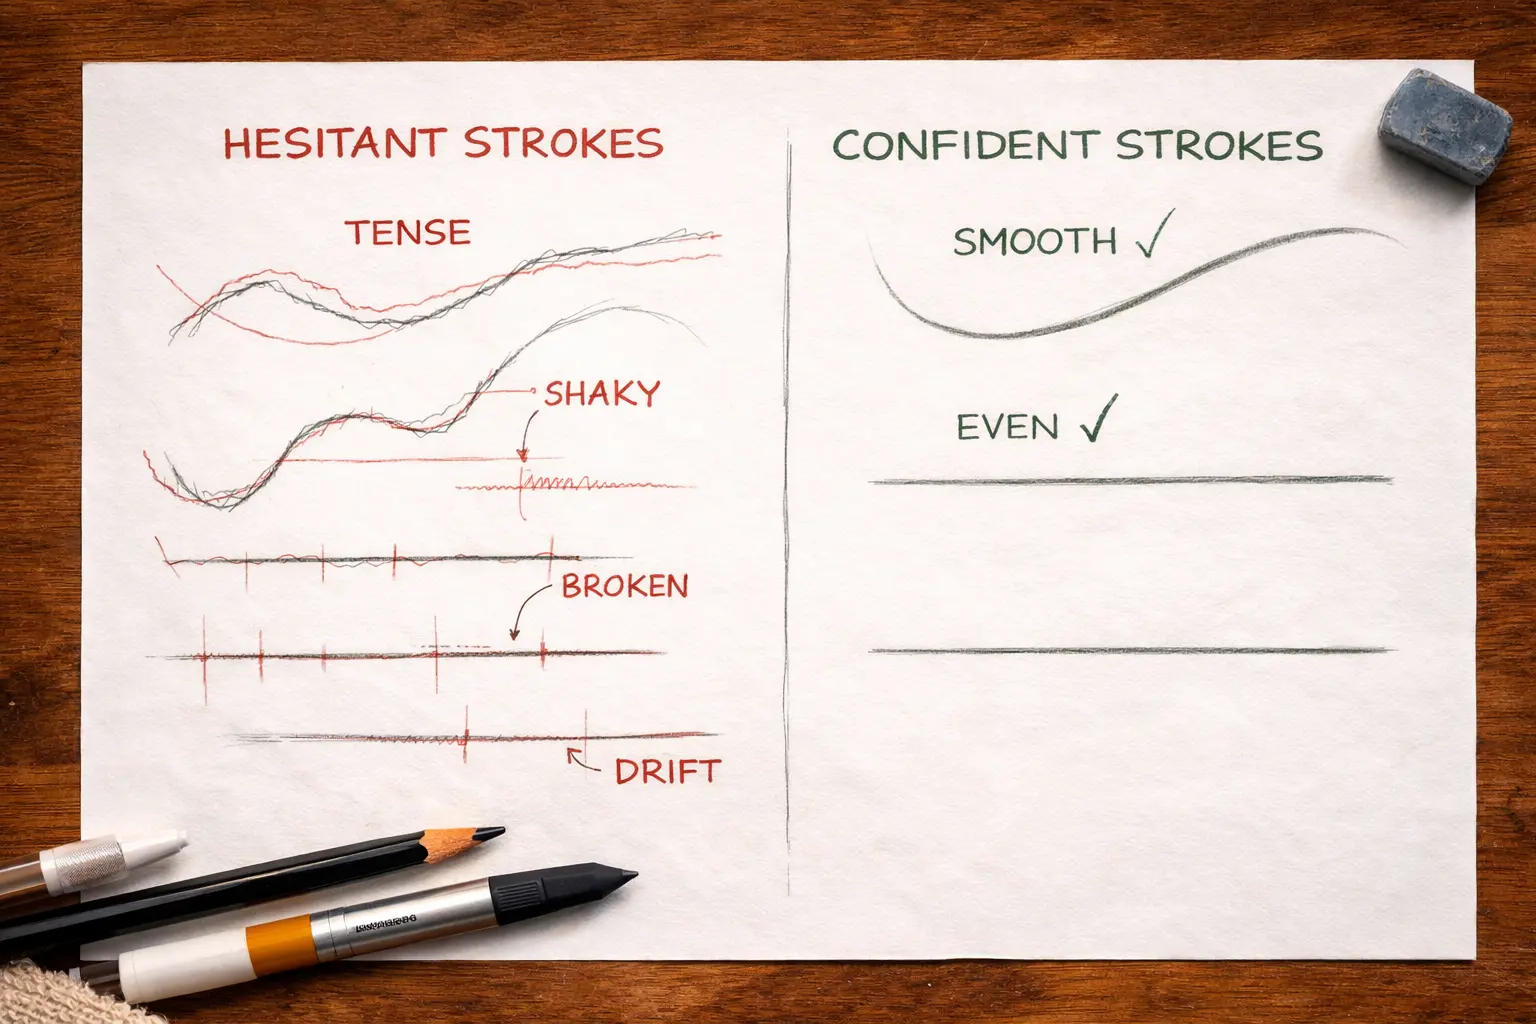 HESITANT STROKES
TENSE
SHAKY
BROKEN
DRIFT
CONFIDENT STROKES
SMOOTH ✓
EVEN ✓